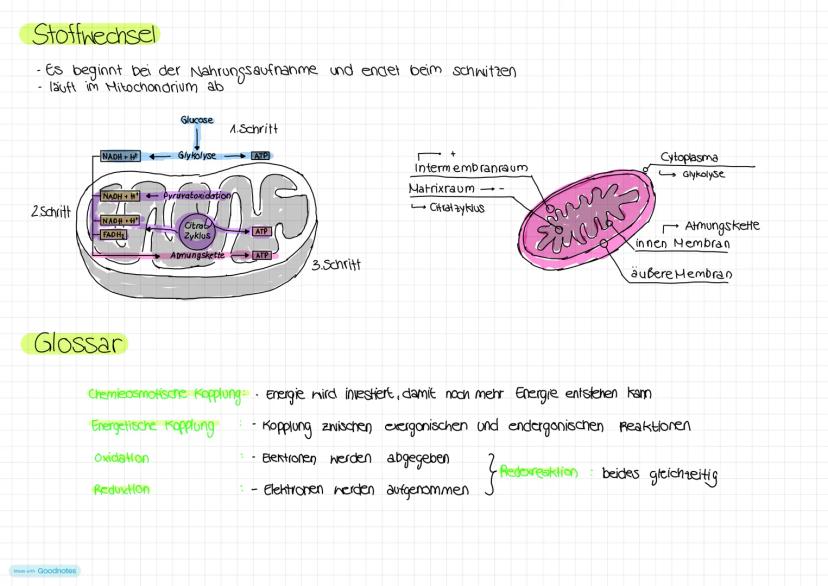 Stoffwechsel
- Es beginnt bei der Nahrungsaufnahme und endet beim schwitzen
- läuft im Mitochondrium ab
Glucose
1. Schritt
NADH + H⁺ ← Glykolyse → ATP
NADH + H⁺ ← Pyruvatoxidation
2. Schritt
NADH + H⁺
Citrat Zyklus
ATP
FADH₂
Atmungskette → ATP
3. Schritt
+
Intermembranraum
Matrixraum → -
Citratzyklus
Cytoplasma
Glykolyse
Atmungskette
innen Membran
äußere Membran
Glossar
Chemieosmotische Kopplung: - Energie wird investiert, damit noch mehr Energie entstehen kann
Energetische Kopplung : - Kopplung zwischen exergonischen und endergonischen Reaktionen
Oxidation : - Elektronen werden abgegeben
Redoxreaktion : beides gleichzeitig
Reduktion : - Elektronen werden aufgenommen
Made with Goodnotes